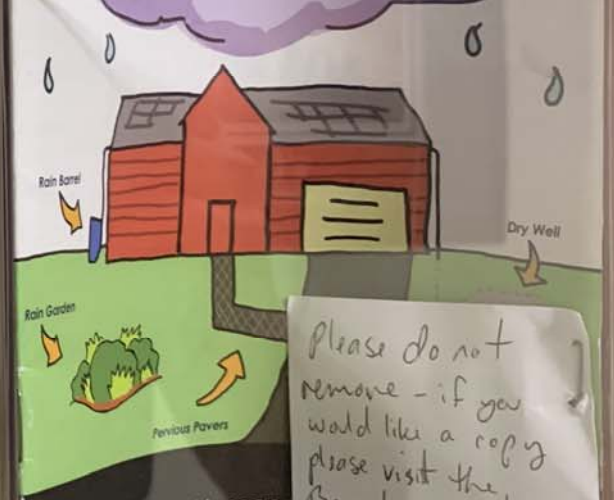 Rain Barrel
Dry Well
Rain Garden
Pervious Pavers
Please do not
remove - if you
would like a copy
please visit the